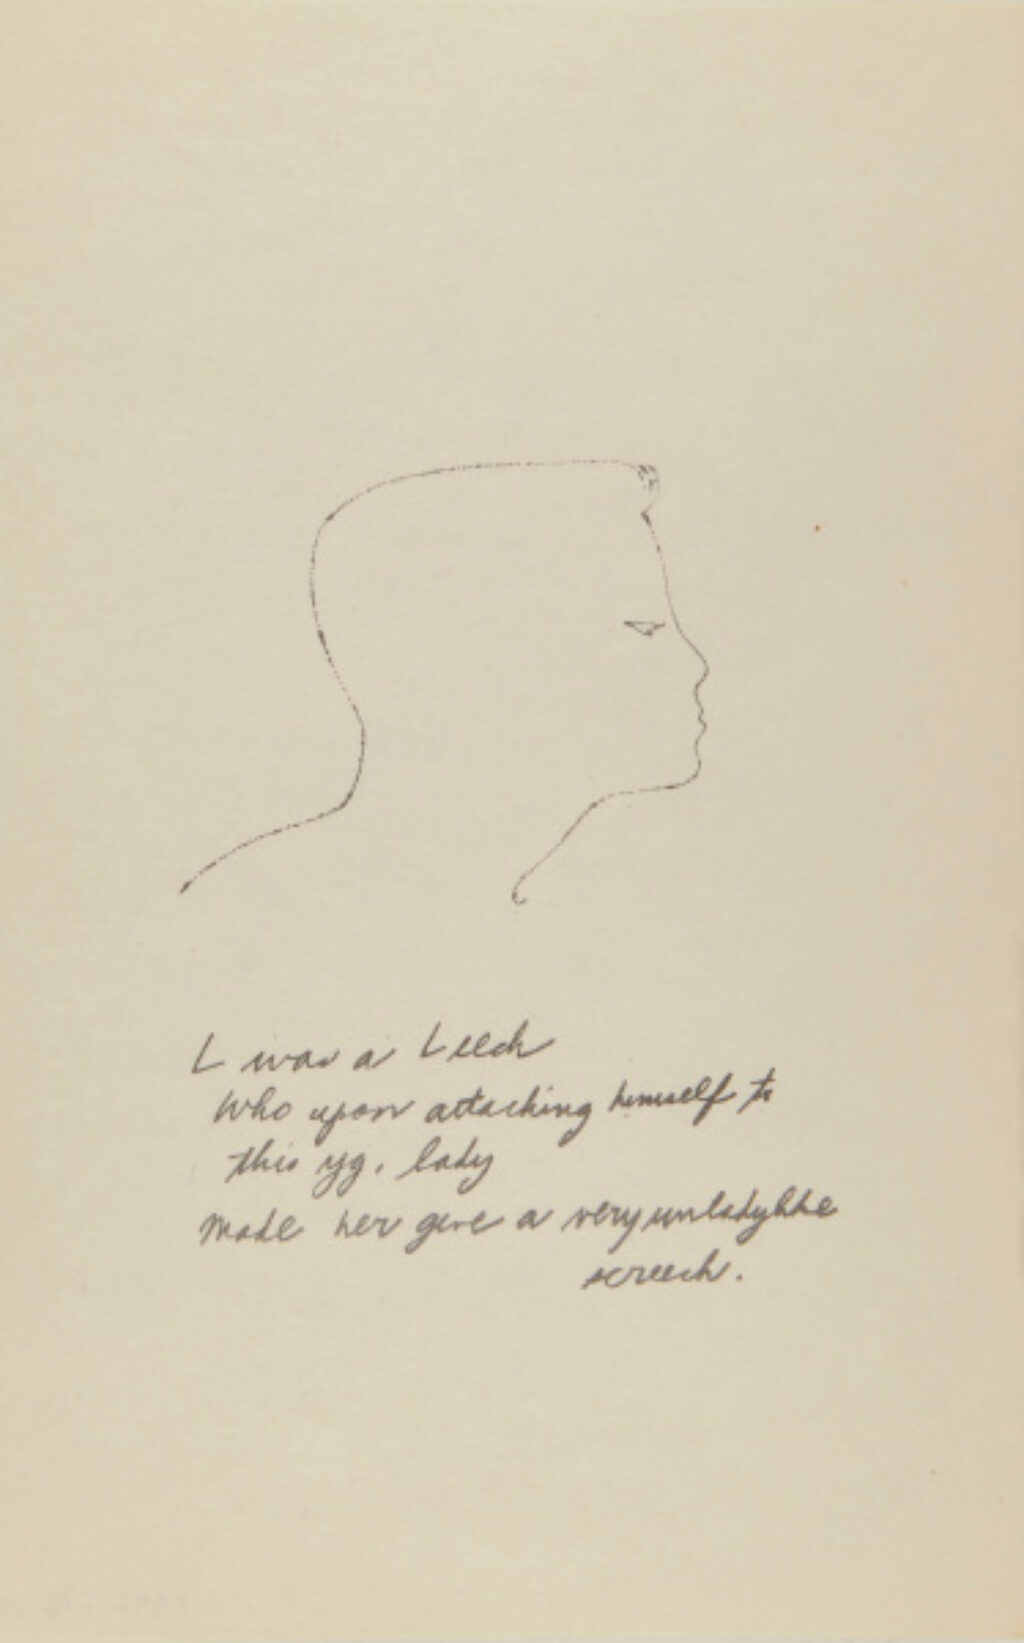 L was a Leech
Who upon attaching himself to
this yg. lady
Made her give a very unladylike
screech.